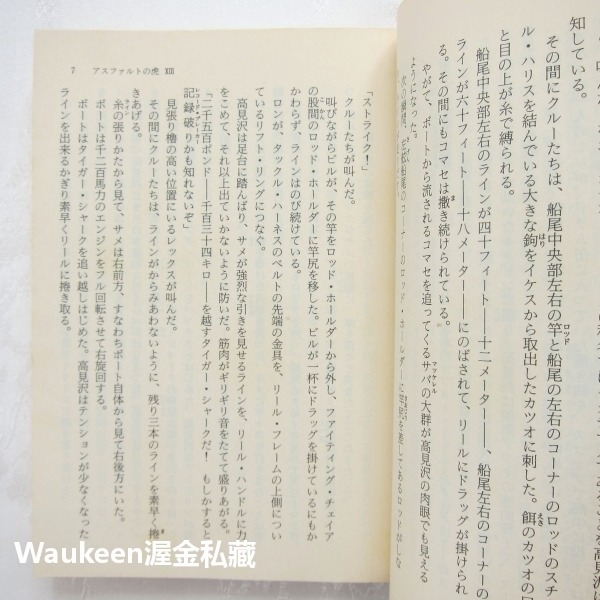 知している。
その間にクルーたちは、船尾中央部左右の竿と船尾の左右のコーナーのロッドのスチ
ル・ハリスを結んでいる大きな鉤をイケスから取出したカツオに刺した。餌のカツオの口
と目の上が糸で縛られる。
船尾中央部左右のラインが四十フィート――十二メーター――、船尾左右のコーナーの
ラインが六十フィート――十八メーター――にのばされて、リールにドラッグが掛けられ
る。その間にもコマセは撒き続けられている。
やがて、ボートから流されるコマセを追ってくるサバの大群が高見沢の肉眼でも見える
ようになった。
次の瞬間、左舷船尾のコーナーのロッド・ホールダーに竿尻を差してあるロッドがしな
7 アスファルトの虎 XIII
「ストライク！」
クルーたちが叫んだ。
叫びながらビルが、その竿をロッド・ホールダーから外し、ファイティング・チェイア
の股間のロッド・ホールダーに竿尻を移した。ビルが一杯にドラッグを掛けているにもか
かわらず、ラインはのび続けている。
ロンが、タックル・ハーネスのベルトの先端の金具を、リール・フレームの上側につい
ているリフト・リングにつなぐ。
高見沢は足台に踏んばり、サメが強烈な引きを見せるラインを、リール・ハンドルに力
をこめて、それ以上出ていかないように防いだ。筋肉がギリギリ音をたてて盛りあがる。
「二千五百ポンド――千百三十四キロ――を越すタイガー・シャークだ！ もしかすると
記録破りかも知れないぞ」
見張り櫓の高い位置にいるレックスが叫んだ。
その間にクルーたちは、ラインがからみあわないように、残り三本のラインを素早く捲
きあげる。
糸の張りかたから見て、サメは右前方、すなわちボート自体から見て右後方にいた。
ボートは千二百馬力のエンジンをフル回転させて右旋回する。
ボートはタイガー・シャークを追い越しはじめた。高見沢はテンションが少なくなった
ラインを出来るかぎり素早くリールに捲き取る。
Waukeen渥金私藏